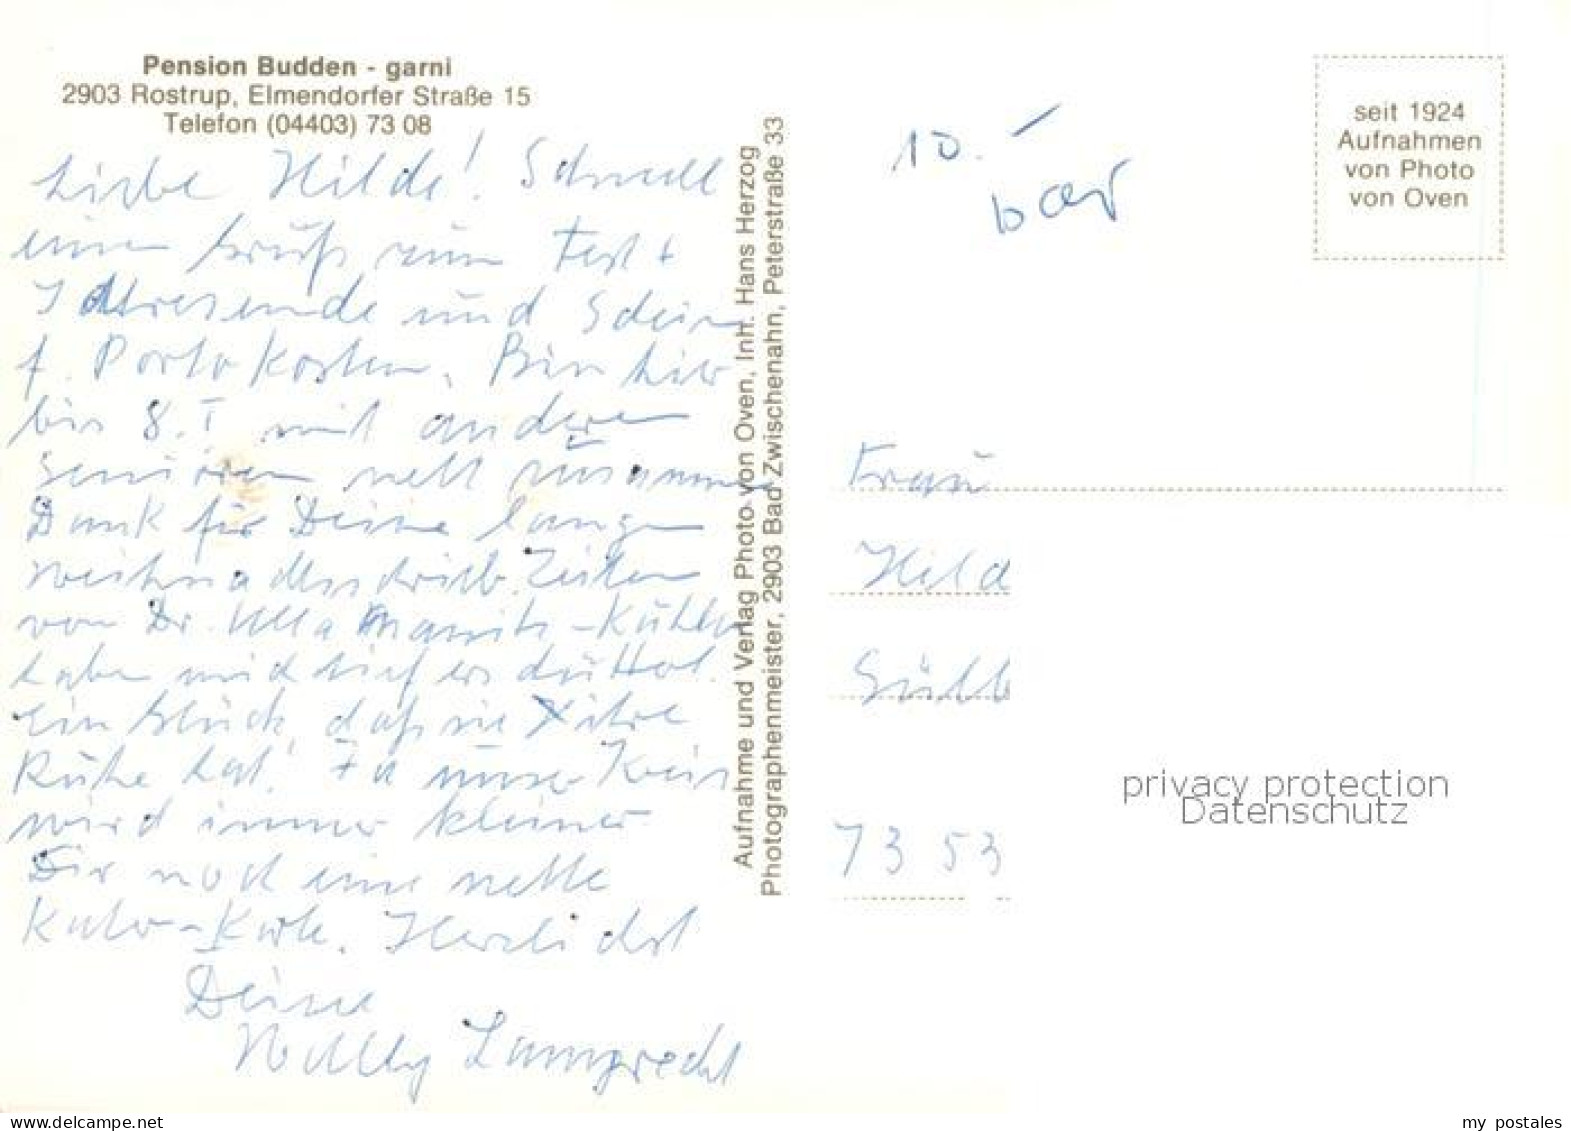 Pension Budden - garni
2903 Rostrup, Elmendorfer Straße 15
Telefon (04403) 73 08
Liebe Hilde! Schnell
einen Gruß zum Fest +
Jahresende und Schein
f. Portokosten. Bin hier
bis 8.I mit anderen
Senioren nett zusammen
Dank für Deine lange
Zeilen
von Dr. Ulla
habe mich tief
ein Glück, daß sie ihre
Ruhe hat! Ja unser Kreis
wird immer kleiner
Dir noch eine nette
Karte. Herzlichst
Deine
Aufnahme und Verlag Photo von Oven, Inh. Hans Herzog
Photographenmeister, 2903 Bad Zwischenahn, Peterstraße 33
10.–
bar
seit 1924
Aufnahmen
von Photo
von Oven
Frau
Hild
73 53
privacy protection
Datenschutz
my postales